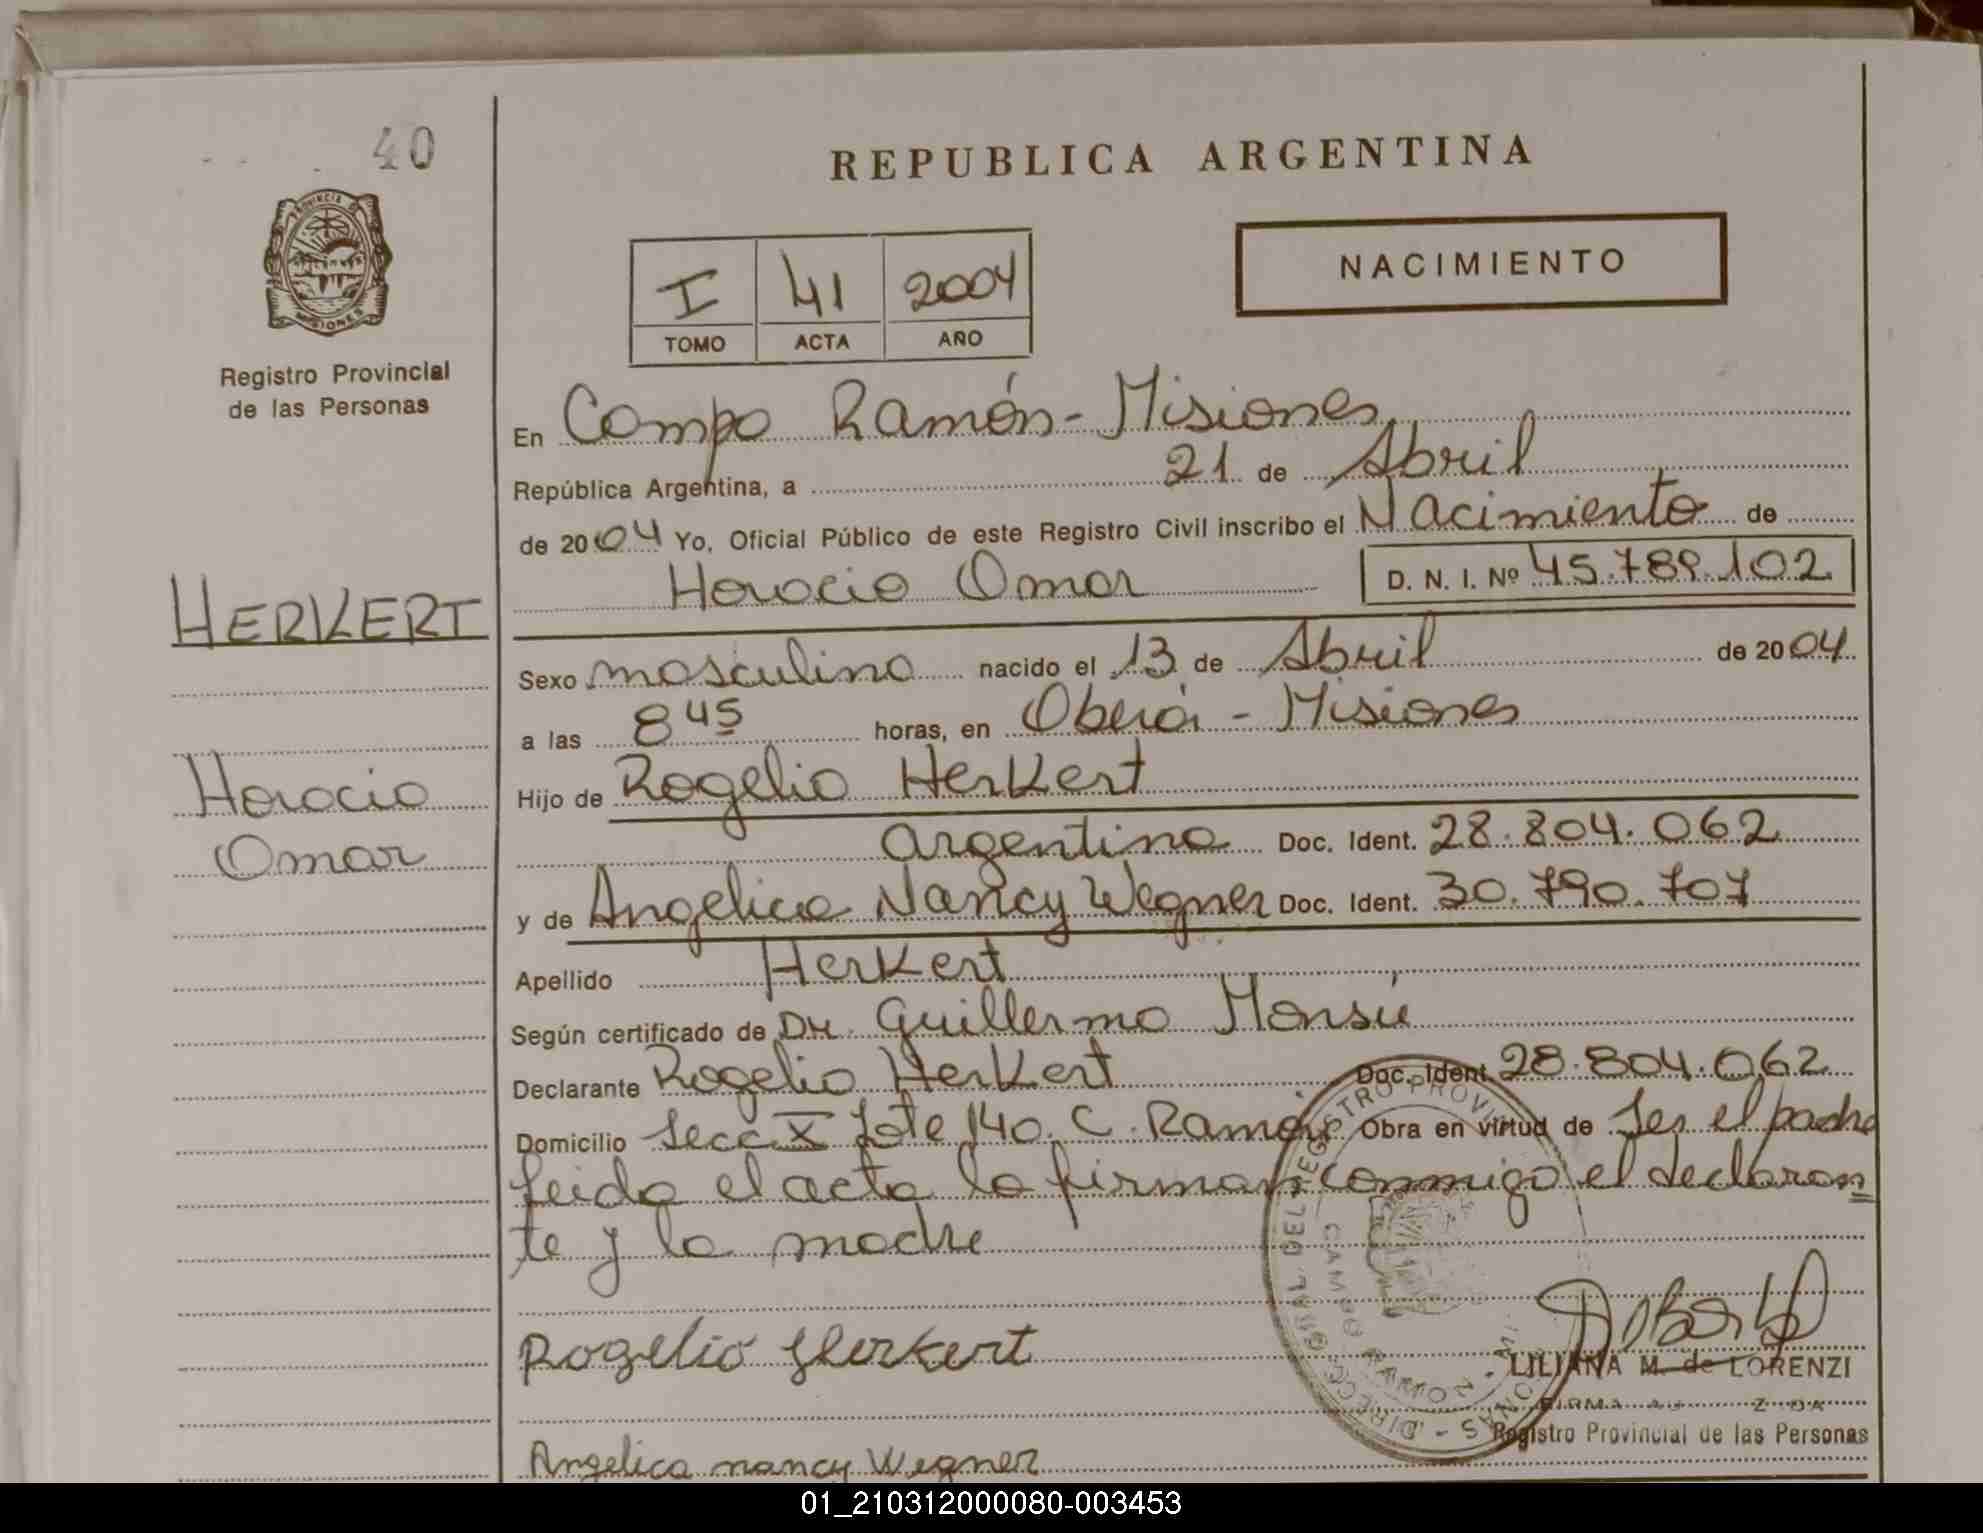 40
REPUBLICA ARGENTINA
PROVINCIA DE
MISIONES
Registro Provincial
de las Personas
NACIMIENTO
I 41 2004
TOMO ACTA AÑO
En Campo Ramón - Misiones
República Argentina, a 21 de Abril
de 2004 Yo, Oficial Público de este Registro Civil inscribo el Nacimiento de
Horacio Omar D. N. I. Nº 45.789.102
HERKERT
Sexo masculino nacido el 13 de Abril de 2004
a las 8 45 horas, en Oberá - Misiones
Horacio
Omar
Hijo de Rogelio Herkert
argentino Doc. Ident. 28.804.062
y de Angelica Nancy Wegner Doc. Ident. 30.790.707
Apellido Herkert
Según certificado de Dr. Guillermo Monsú
Declarante Rogelio Herkert Doc. Ident. 28.804.062
Domicilio Secc X Lote 140. C. Ramón Obra en virtud de Ser el padre
Leida el acta la firman conmigo el declaran=
te y la madre
Rogelio Herkert
LILIANA M. de LORENZI
Registro Provincial de las Personas
Angelica nancy Wegner
01_210312000080-003453